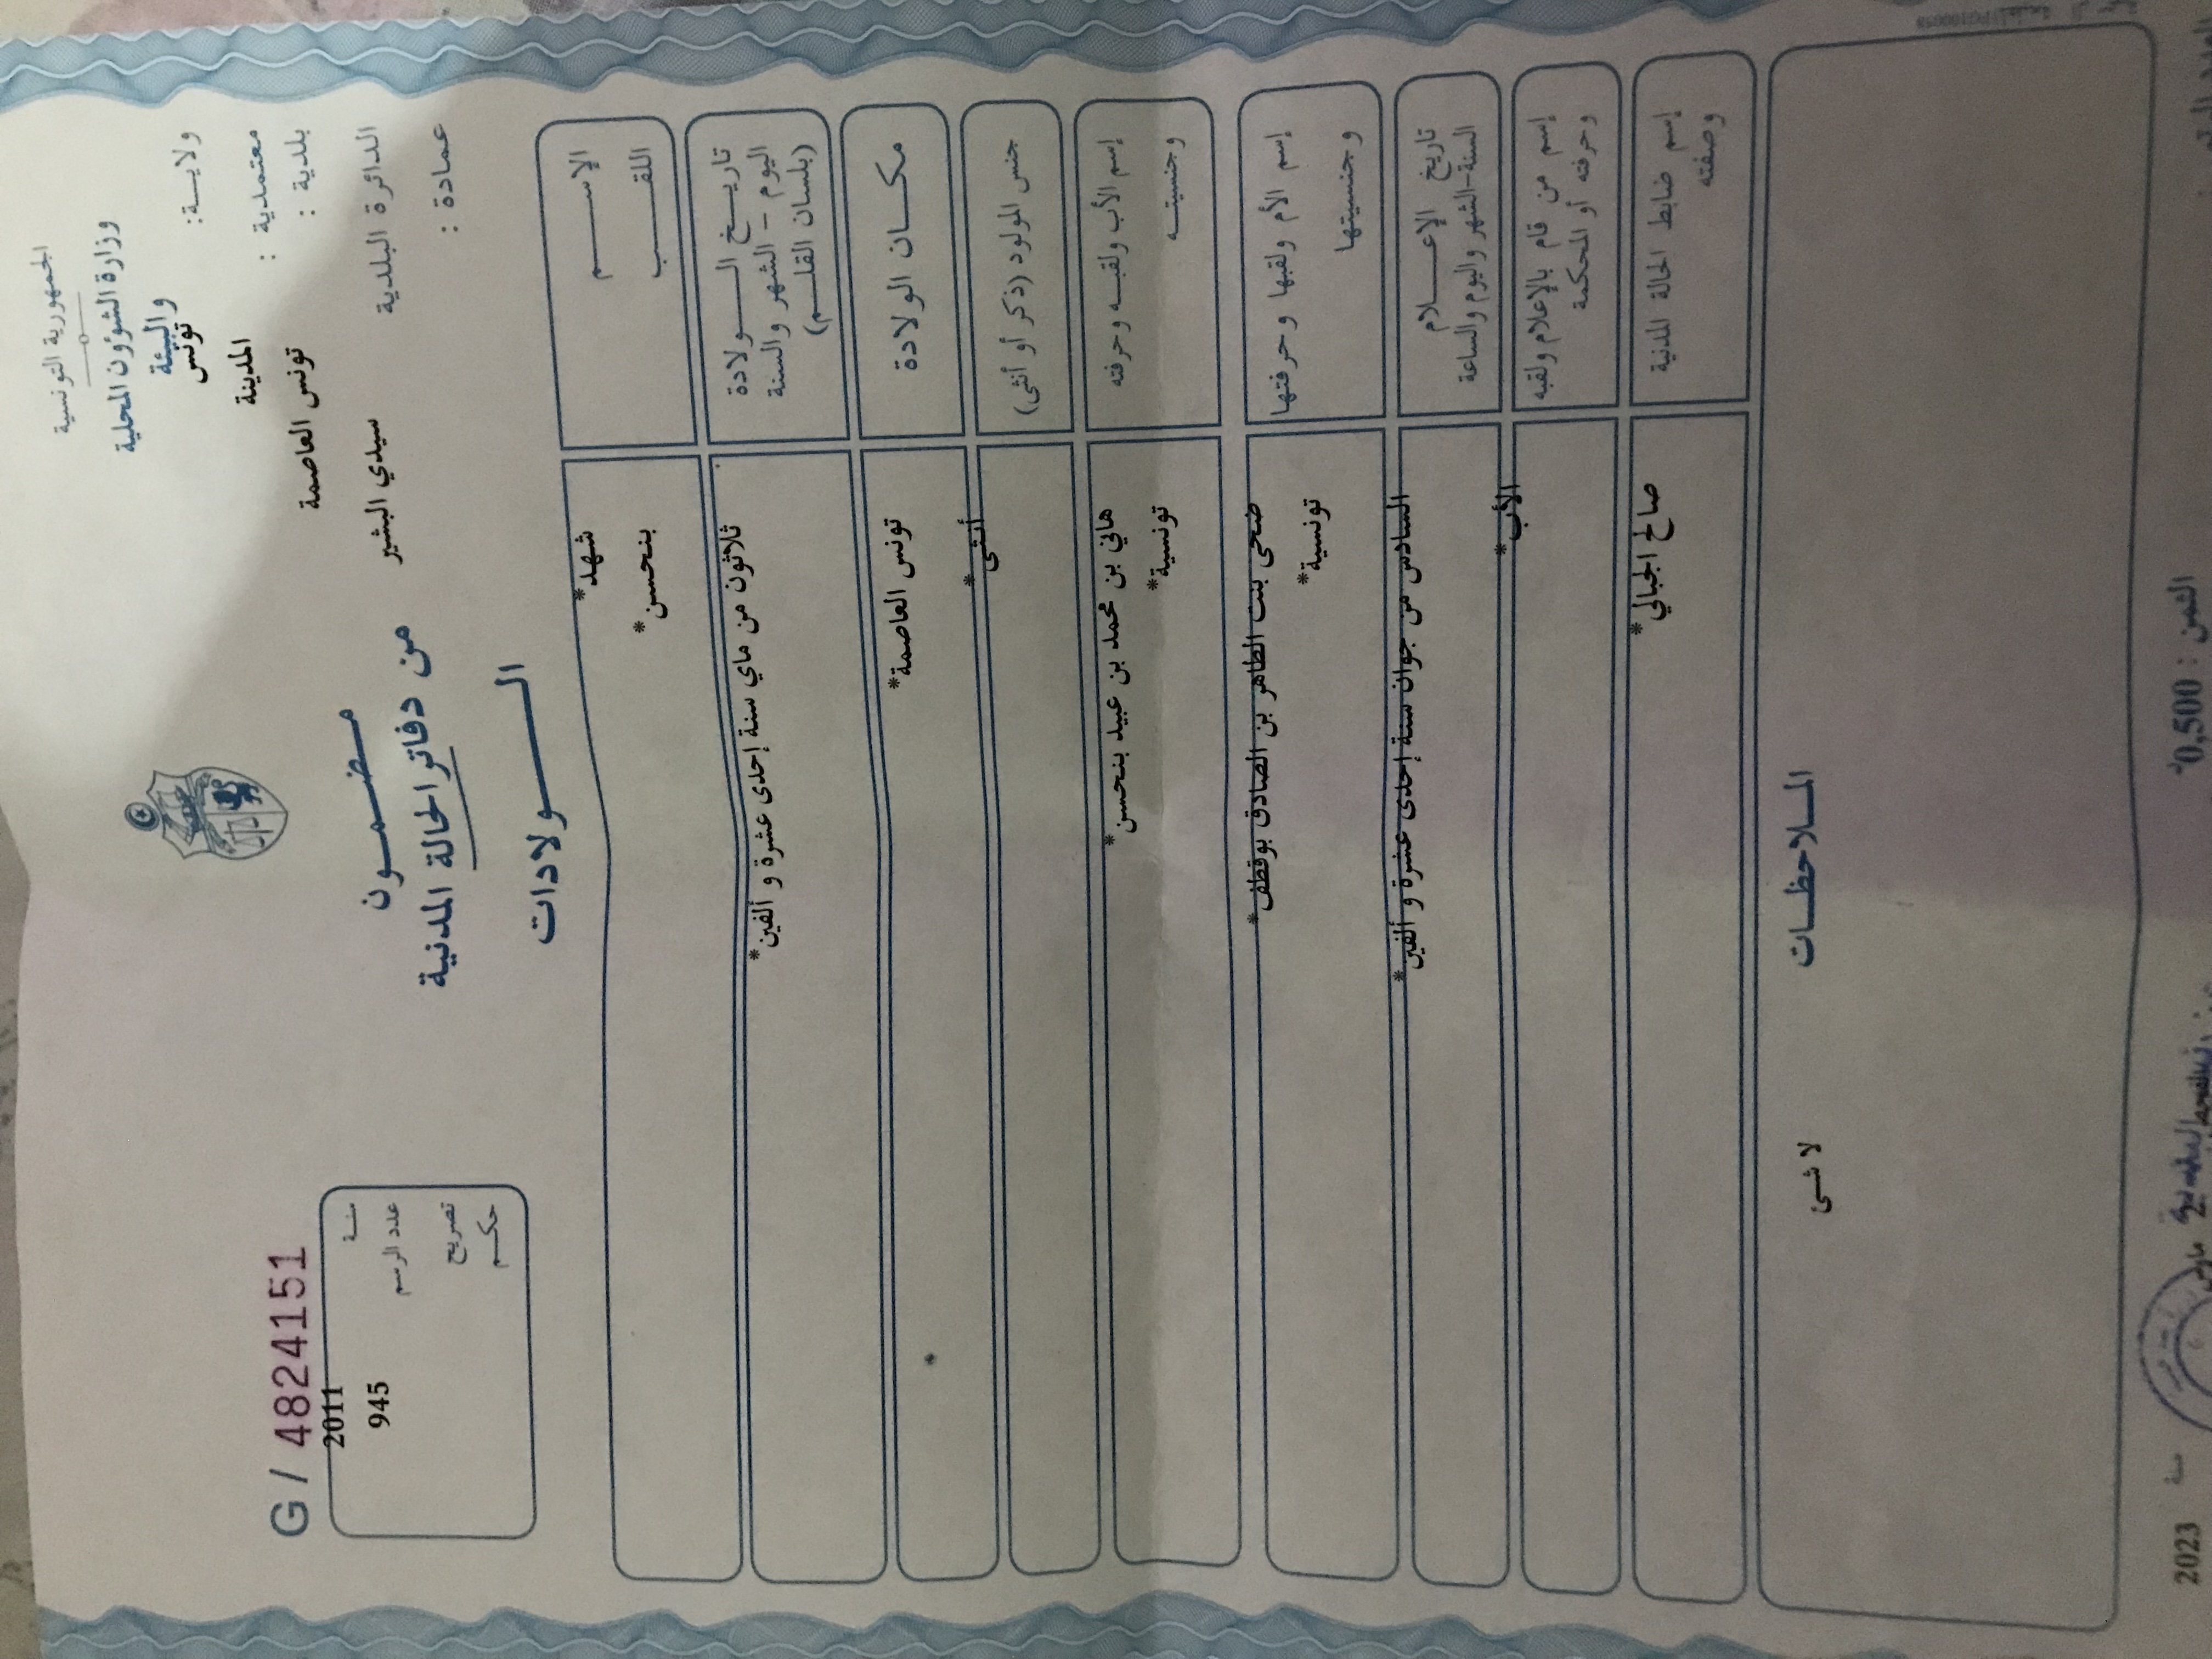 الجمهورية التونسية
وزارة الشؤون المحلية
والبيئة
ولايـة: تونس
معتمدية : المدينة
بلدية : تونس العاصمة
الدائرة البلدية سيدي البشير
عمادة :
G / 4824151
سنة 2011
عدد الرسم 945
تصريح
حكم
مضمون
من دفاتر الحالة المدنية
الولادات
الإسم شهد*
اللقب بنحسن*
تاريخ الولادة
اليوم - الشهر والسنة
(بلسان القلم)
ثلاثون من ماي سنة إحدى عشرة و ألفين*
مكان الولادة تونس العاصمة*
جنس المولود (ذكر أو أنثى) أنثى*
إسم الأب ولقبه وحرفته هاني بن محمد بن عبيد بنحسن*
وجنسيته تونسية*
إسم الأم ولقبها وحرفتها ضحى بنت الطاهر بن الصادق بوقطف*
وجنسيتها تونسية*
تاريخ الإعلام
السنة-الشهر واليوم والساعة
السادس من جوان سنة إحدى عشرة و ألفين*
إسم من قام بالإعلام ولقبه الأب*
وحرفته أو المحكمة
إسم ضابط الحالة المدنية صالح الجبالي*
وصفته
الملاحظات
لا شئ
الثمن : 0,500د
2 مارس
سنة 2023